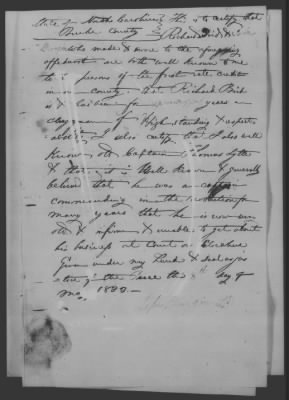 State of North Carolina This is to certify that
Burke County Richard Bird &
who makes & sworn to the foregoing
affidavit are both well known to me
to be persons of the first rate credit
in our county. that Richard Bird
is & has been for many years a
clergyman of High standing & respect-
ability I also certify that I also well
know Captain Thomas Lytle
& that it is Well known & generally
believed that he was a captain
commanding in the Revolution for
many years that he is now very
old & infirm & unable to get about
his business at Court or Elsewhere
Given under my hand & seal as
Justice of the Peace this 8th day of
1833